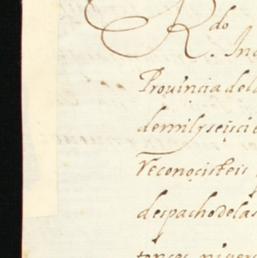 Rdo
. Ind
Provincia dela
demilyseiscie
Reconocisteis
despachodelas